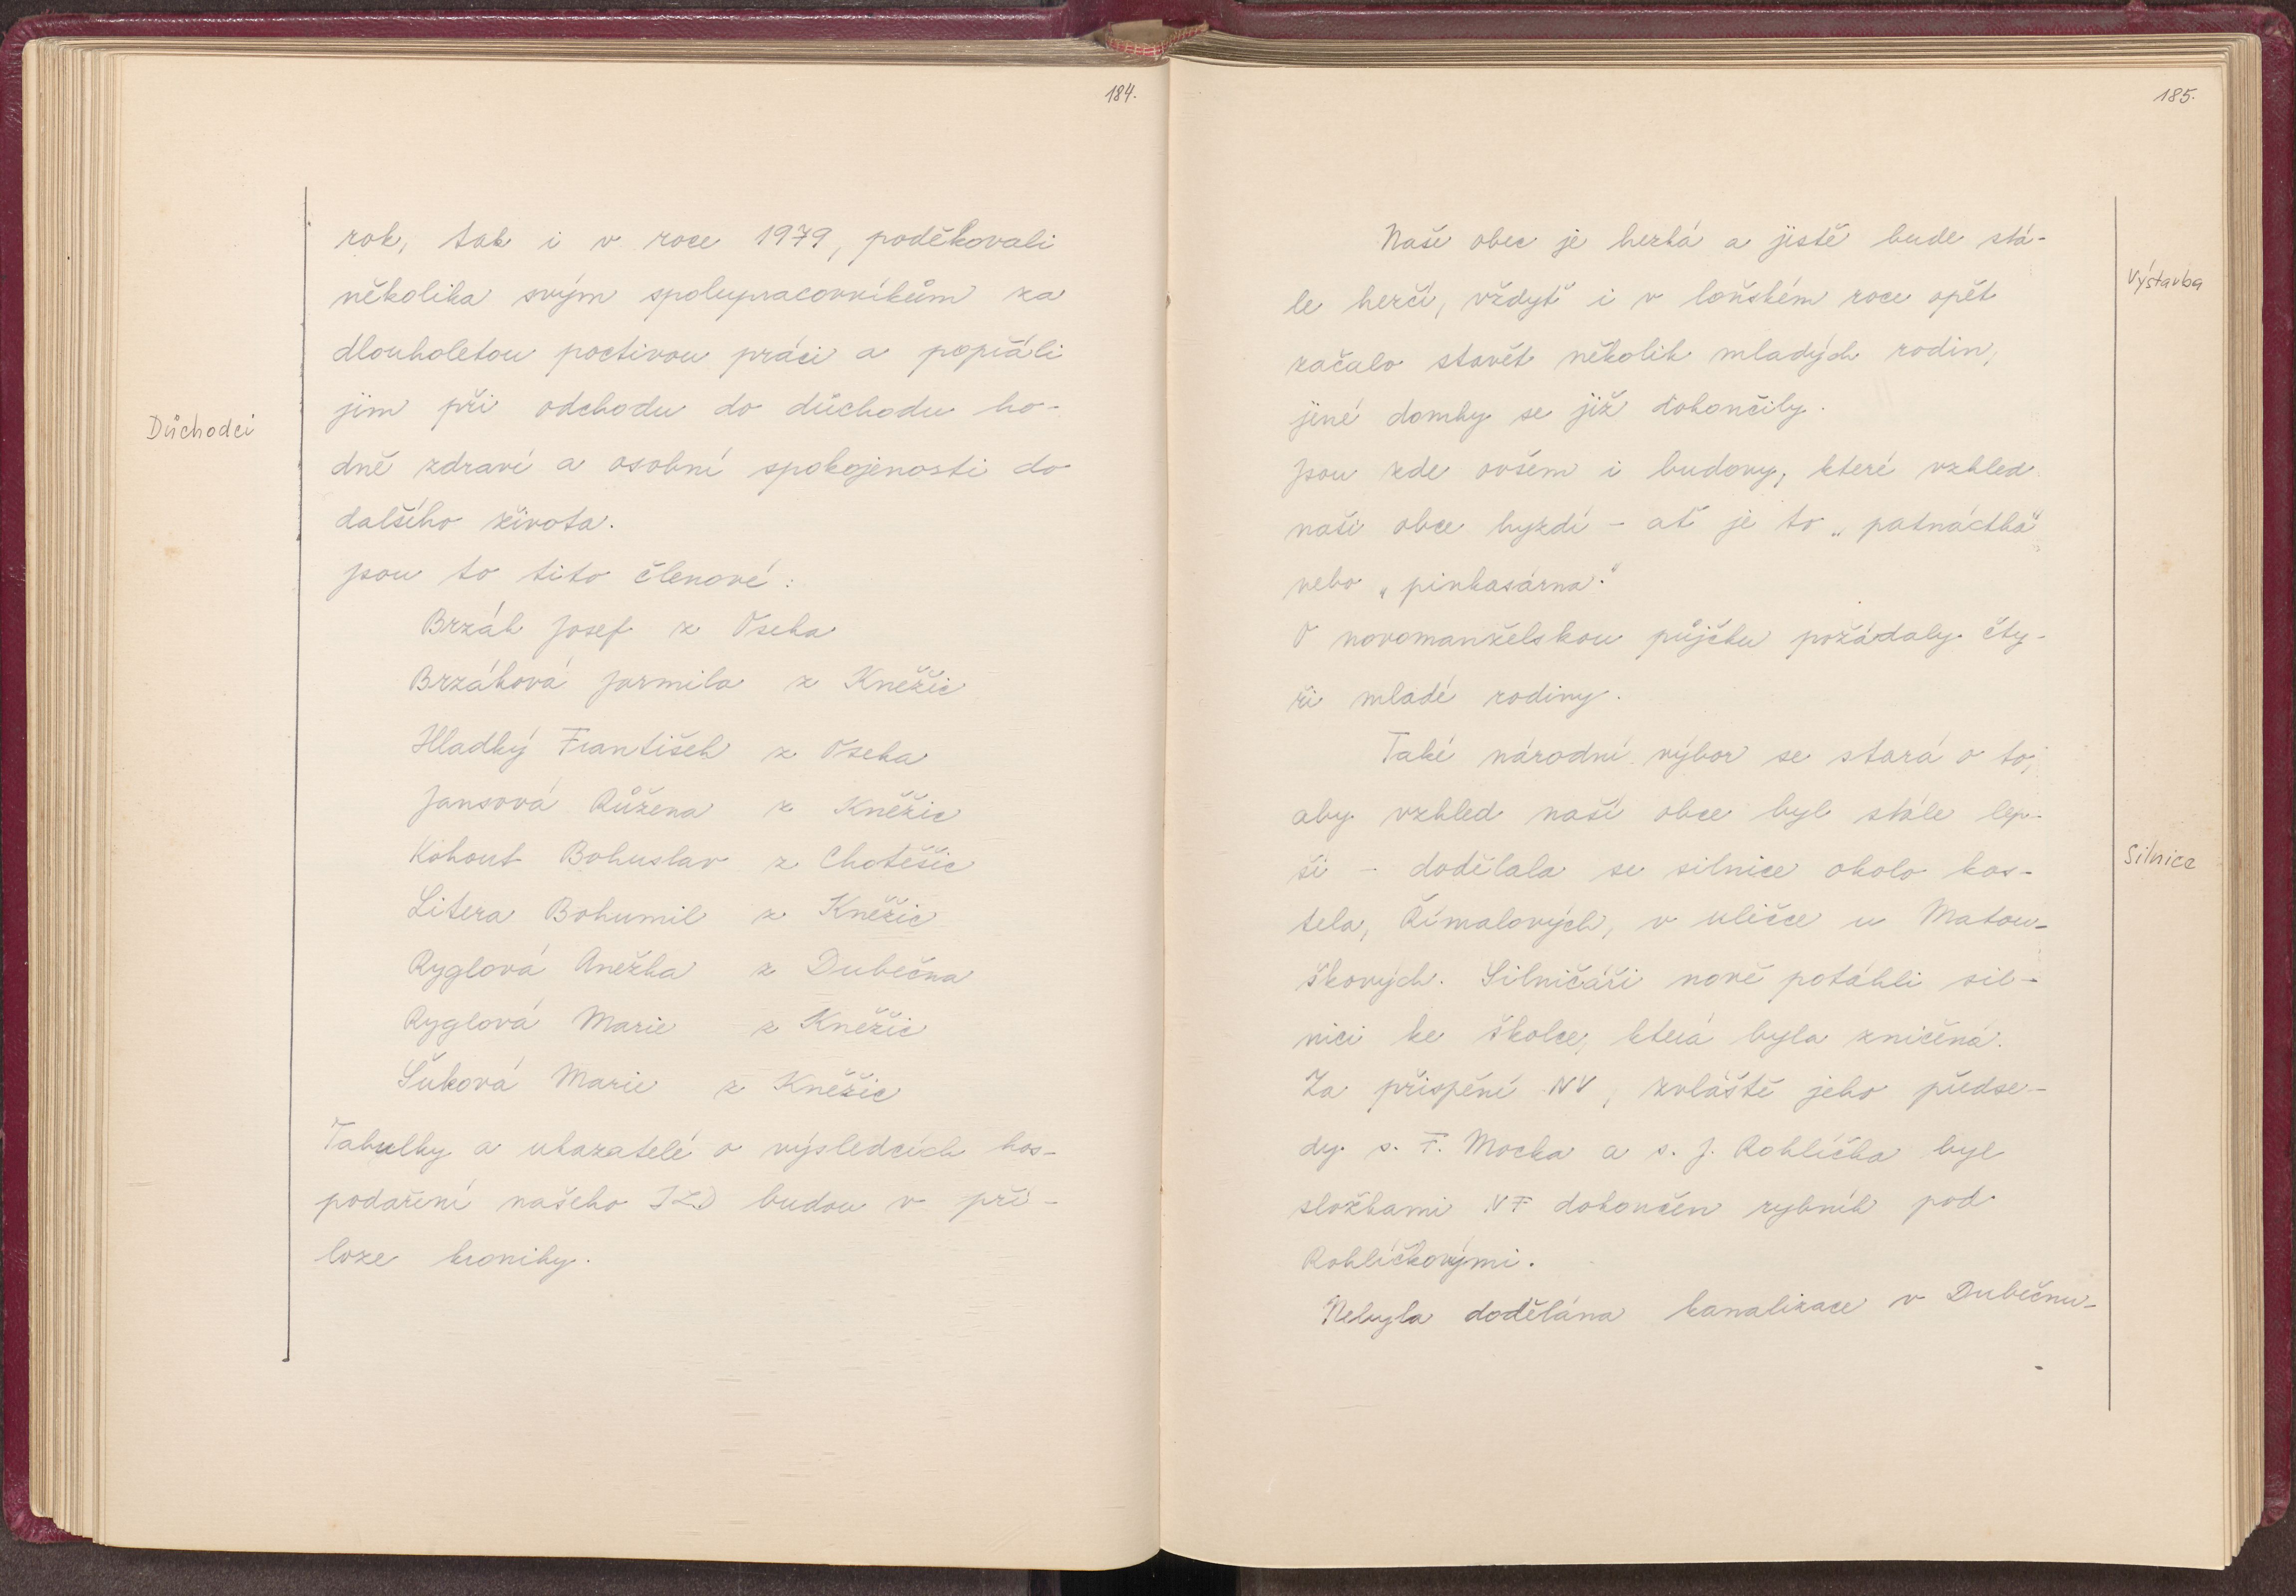 184.
rok, tak i v roce 1979, poděkovali
několika svým spolupracovníkům za
dlouholetou poctivou práci a popřáli
jim při odchodu do důchodu ho-
Důchodci
dně zdraví a osobní spokojenosti do
dalšího života.
Jsou to tito členové:
Brzák Josef z Oseka
Brzáková Jarmila z Kněžic
Hladký František z Oseka
Jansová Růžena z Kněžic
Kohout Bohuslav z Chotěšic
Litera Bohumil z Kněžic
Ryglová Anežka z Dubečna
Ryglová Marie z Kněžic
Šuková Marie z Kněžic
Tabulky a ukazatelé o výsledcích hos-
podaření našeho JZD budou v pří-
loze kroniky.
185.
Naše obec je hezká a jistě bude stá-
Výstavba
le hezčí, vždyť i v loňském roce opět
začalo stavět několik mladých rodin,
jiné domky se již dokončily.
Jsou zde ovšem i budovy, které vzhled
naší obce hyzdí - ať je to „patnáctka"
nebo „pinkasárna."
O novomanželskou půjčku požádaly čty-
ři mladé rodiny.
Také národní výbor se stará o to,
aby vzhled naší obce byl stále lep-
ší - dodělala se silnice okolo kos-
Silnice
tela, Římalových, v uličce u Matou-
škových. Silničáři nově potáhli sil-
nici ke školce, která byla zničená.
Za přispění NV, zvláště jeho předse-
dy s. F. Mocka a s. J. Rohlíčka byl
složkami NF dokončen rybník pod
Rohlíčkovými.
Nebyla dodělána kanalizace v Dubečnu-